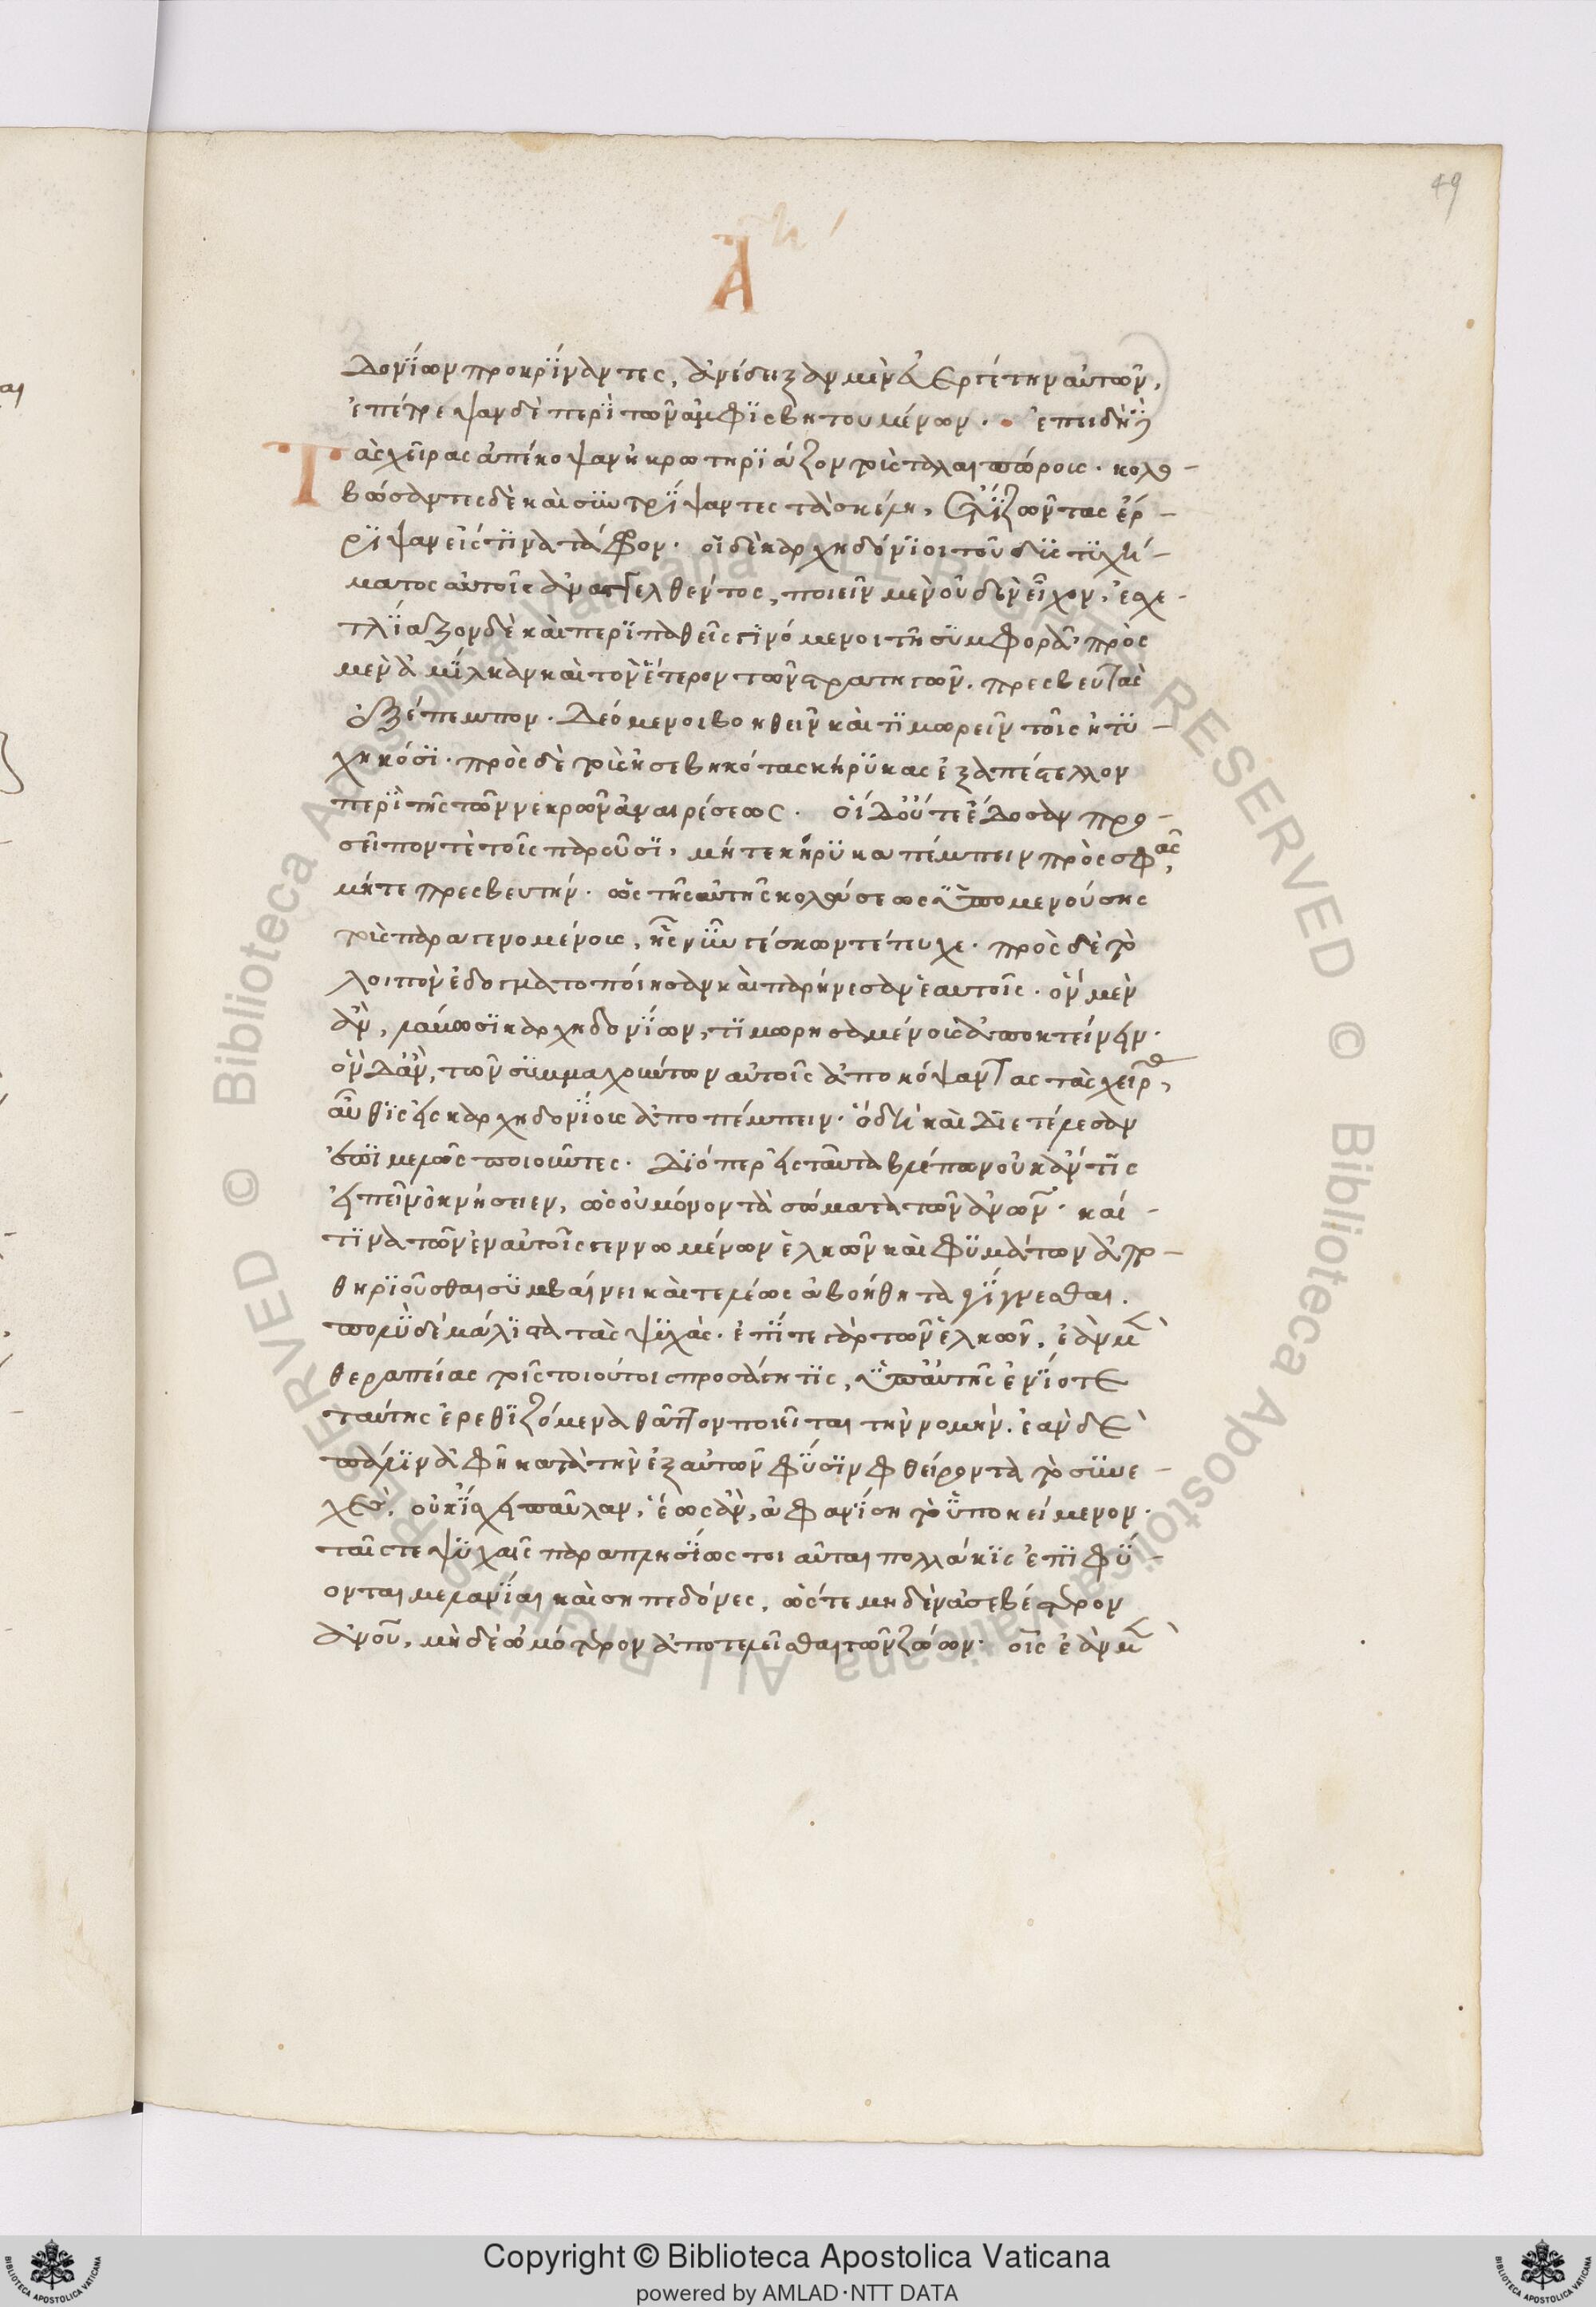 49
Α
δονίων προκρίναντες, ἀνέδειξαν μὲν εὐεργέτην αὐτῶν,
ἐπέτρεψαν δὲ περὶ τῶν ἀμφισβητουμένων. ἐπειδὴ
Τὰς χεῖρας ἀπέκοψαν ἠκρωτηρίαζον τοὺς ταλαιπώρους. κολο-
βώσαντες δὲ καὶ συντρίψαντες τὰ σκέλη, ἔτι ζῶντας ἔρ-
ριψαν εἴς τινα τάφον. οἱ δὲ καρχηδόνιοι τοῦ δυστυχή-
ματος αὐτοῖς ἀναγγελθέντος, ποιεῖν μὲν οὐδὲν εἶχον, ἐσχε-
τλίαζον δὲ καὶ περιπαθεῖς γινόμενοι τῇ συμφορᾷ, πρὸς
μὲν ἀμίλκαν καὶ τὸν ἕτερον τῶν στρατηγῶν. πρεσβευτὰς
ἐξέπεμπον. δεόμενοι βοηθεῖν καὶ τιμωρεῖν τοῖς ἠτυ-
χηκόσι. πρὸς δὲ τοὺς ἠσεβηκότας κήρυκας ἐξαπέστελλον
περὶ τῆς τῶν νεκρῶν ἀναιρέσεως. οἱ δ' οὔτε ἔδοσαν προ-
σεῖπόν τε τοῖς παροῦσι, μήτε κήρυκα πέμπειν πρὸς σφᾶς,
μήτε πρεσβευτήν. ὡς τῆς αὐτῆς κολάσεως ὑπομενούσης
τοῖς παραγενομένοις, ἧς νῦν γέσκων τέτευχε. πρὸς δὲ τὸ
λοιπὸν ἐδογματοποίησαν καὶ παρήνεσαν ἑαυτοῖς. ὃν μὲν
ἂν λάβωσι καρχηδονίων, τιμωρησαμένους ἀποκτείνειν.
ὃν δ' ἂν, τῶν συμμαχούντων αὐτοῖς ἀποκόψαντας τὰς χεῖρας,
αὖθις εἰς καρχηδονίους ἀποπέμπειν. ὃ δὴ καὶ διετέλεσαν
ἐπιμελῶς ποιοῦντες. διόπερ εἰς ταῦτα βλέπων οὐκ ἄν τις
εἰπεῖν ὀκνήσειεν, ὡς οὐ μόνον τὰ σώματα τῶν ἀνων. καί
τινα τῶν ἐν αὐτοῖς γεννωμένων ἑλκῶν καὶ φυμάτων ἀπο-
θηριοῦσθαι συμβαίνει καὶ τελέως ἀβοήθητα γίγνεσθαι.
πολὺ δὲ μάλιστα τὰς ψυχάς. ἐπί τε γὰρ τῶν ἑλκῶν, ἐὰν μὲν
θεραπείας τοῖς τοιούτοις προσάγῃ τις, ὑπ' αὐτῆς ἐνίοτε
ταύτης ἐρεθιζόμενα θᾶττον ποιεῖται τὴν νομήν. ἐὰν δὲ
πάλιν ἀφῇ κατὰ τὴν ἐξ αὐτῶν φύσιν φθείροντα τὸ συνε-
χές, οὐκ ἴσχει παῦλαν, ἕως ἂν, ἀφανίσῃ τὸ ὑποκείμενον.
ταῖς τε ψυχαῖς παραπλησίως τοιαῦται πολλάκις ἐπιφύ-
ονται μελανίαι καὶ σηπεδόνες, ὥστε μηδὲν ἀσεβέστερον
ἀνου, μηδὲ ὠμότερον ἀποτελεῖσθαι τῶν ζώων. οἷς ἐὰν μὲν
Copyright © Biblioteca Apostolica Vaticana
powered by AMLAD·NTT DATA